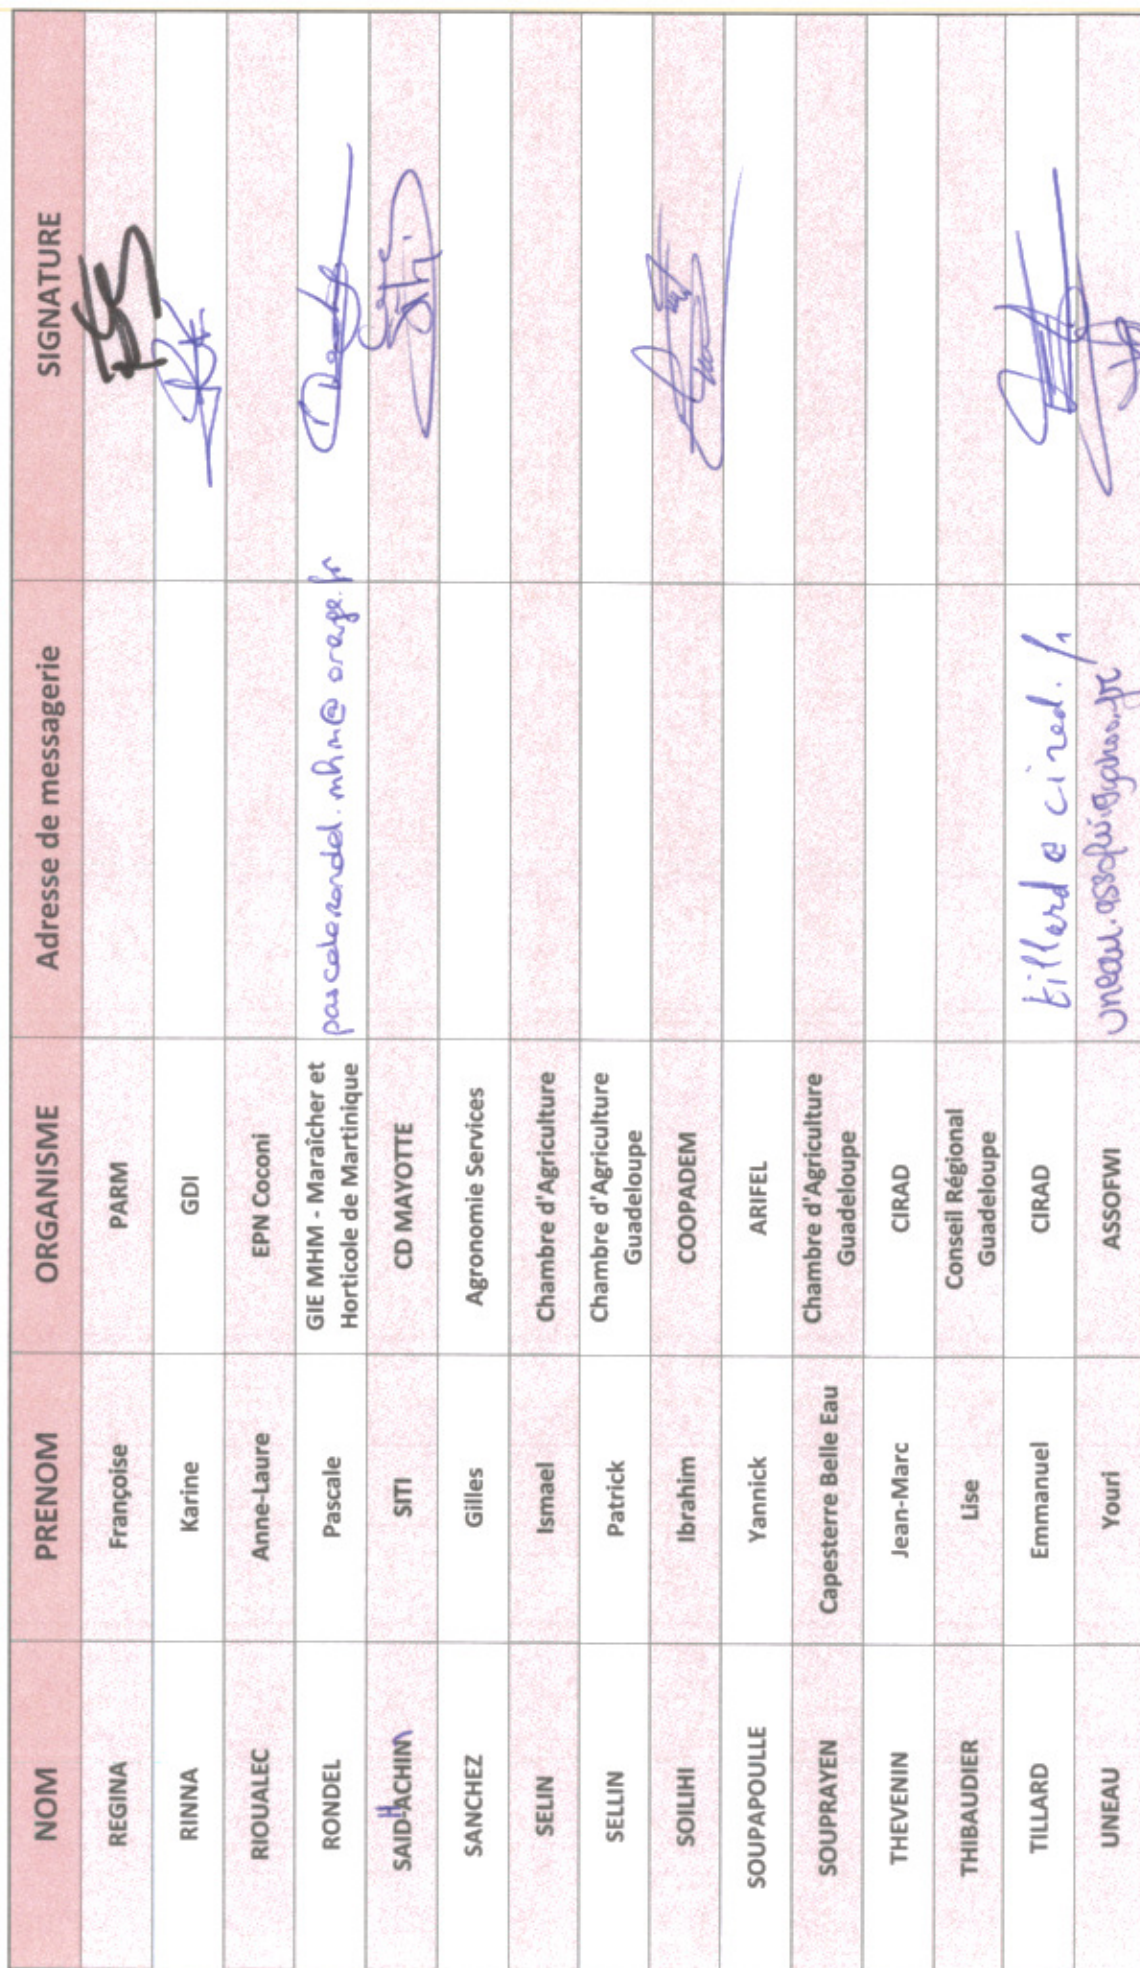 NOM PRENOM ORGANISME Adresse de messagerie SIGNATURE
REGINA Françoise PARM
RINNA Karine GDI
RIOUALEC Anne-Laure EPN Coconi
RONDEL Pascale GIE MHM - Maraîcher et
Horticole de Martinique pascale.rondel.mhm@orange.fr
SAIDHACHIM SITI CD MAYOTTE
SANCHEZ Gilles Agronomie Services
SELIN Ismael Chambre d'Agriculture
SELLIN Patrick Chambre d'Agriculture
Guadeloupe
SOILIHI Ibrahim COOPADEM
SOUPAPOULLE Yannick ARIFEL
SOUPRAYEN Capesterre Belle Eau Chambre d'Agriculture
Guadeloupe
THEVENIN Jean-Marc CIRAD
THIBAUDIER Lise Conseil Régional
Guadeloupe
TILLARD Emmanuel CIRAD tillard@cirad.fr
UNEAU Youri ASSOFWI uneau.assofwi@yahoo.fr